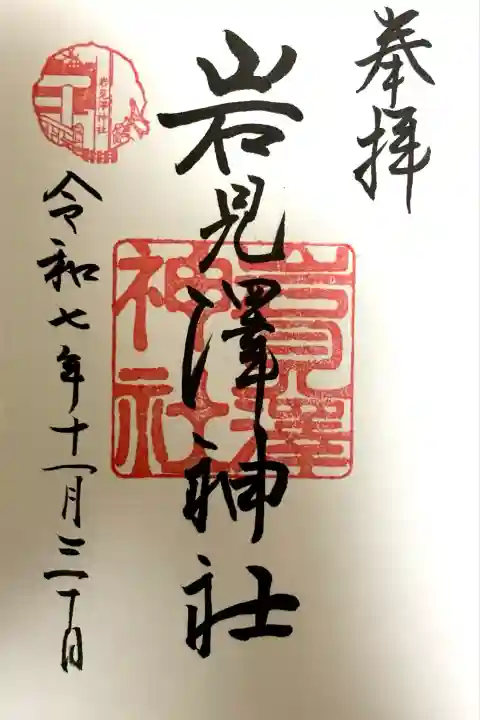 奉拝
岩見澤神社
岩見澤神社
岩見澤神社
令和七年十一月三十日